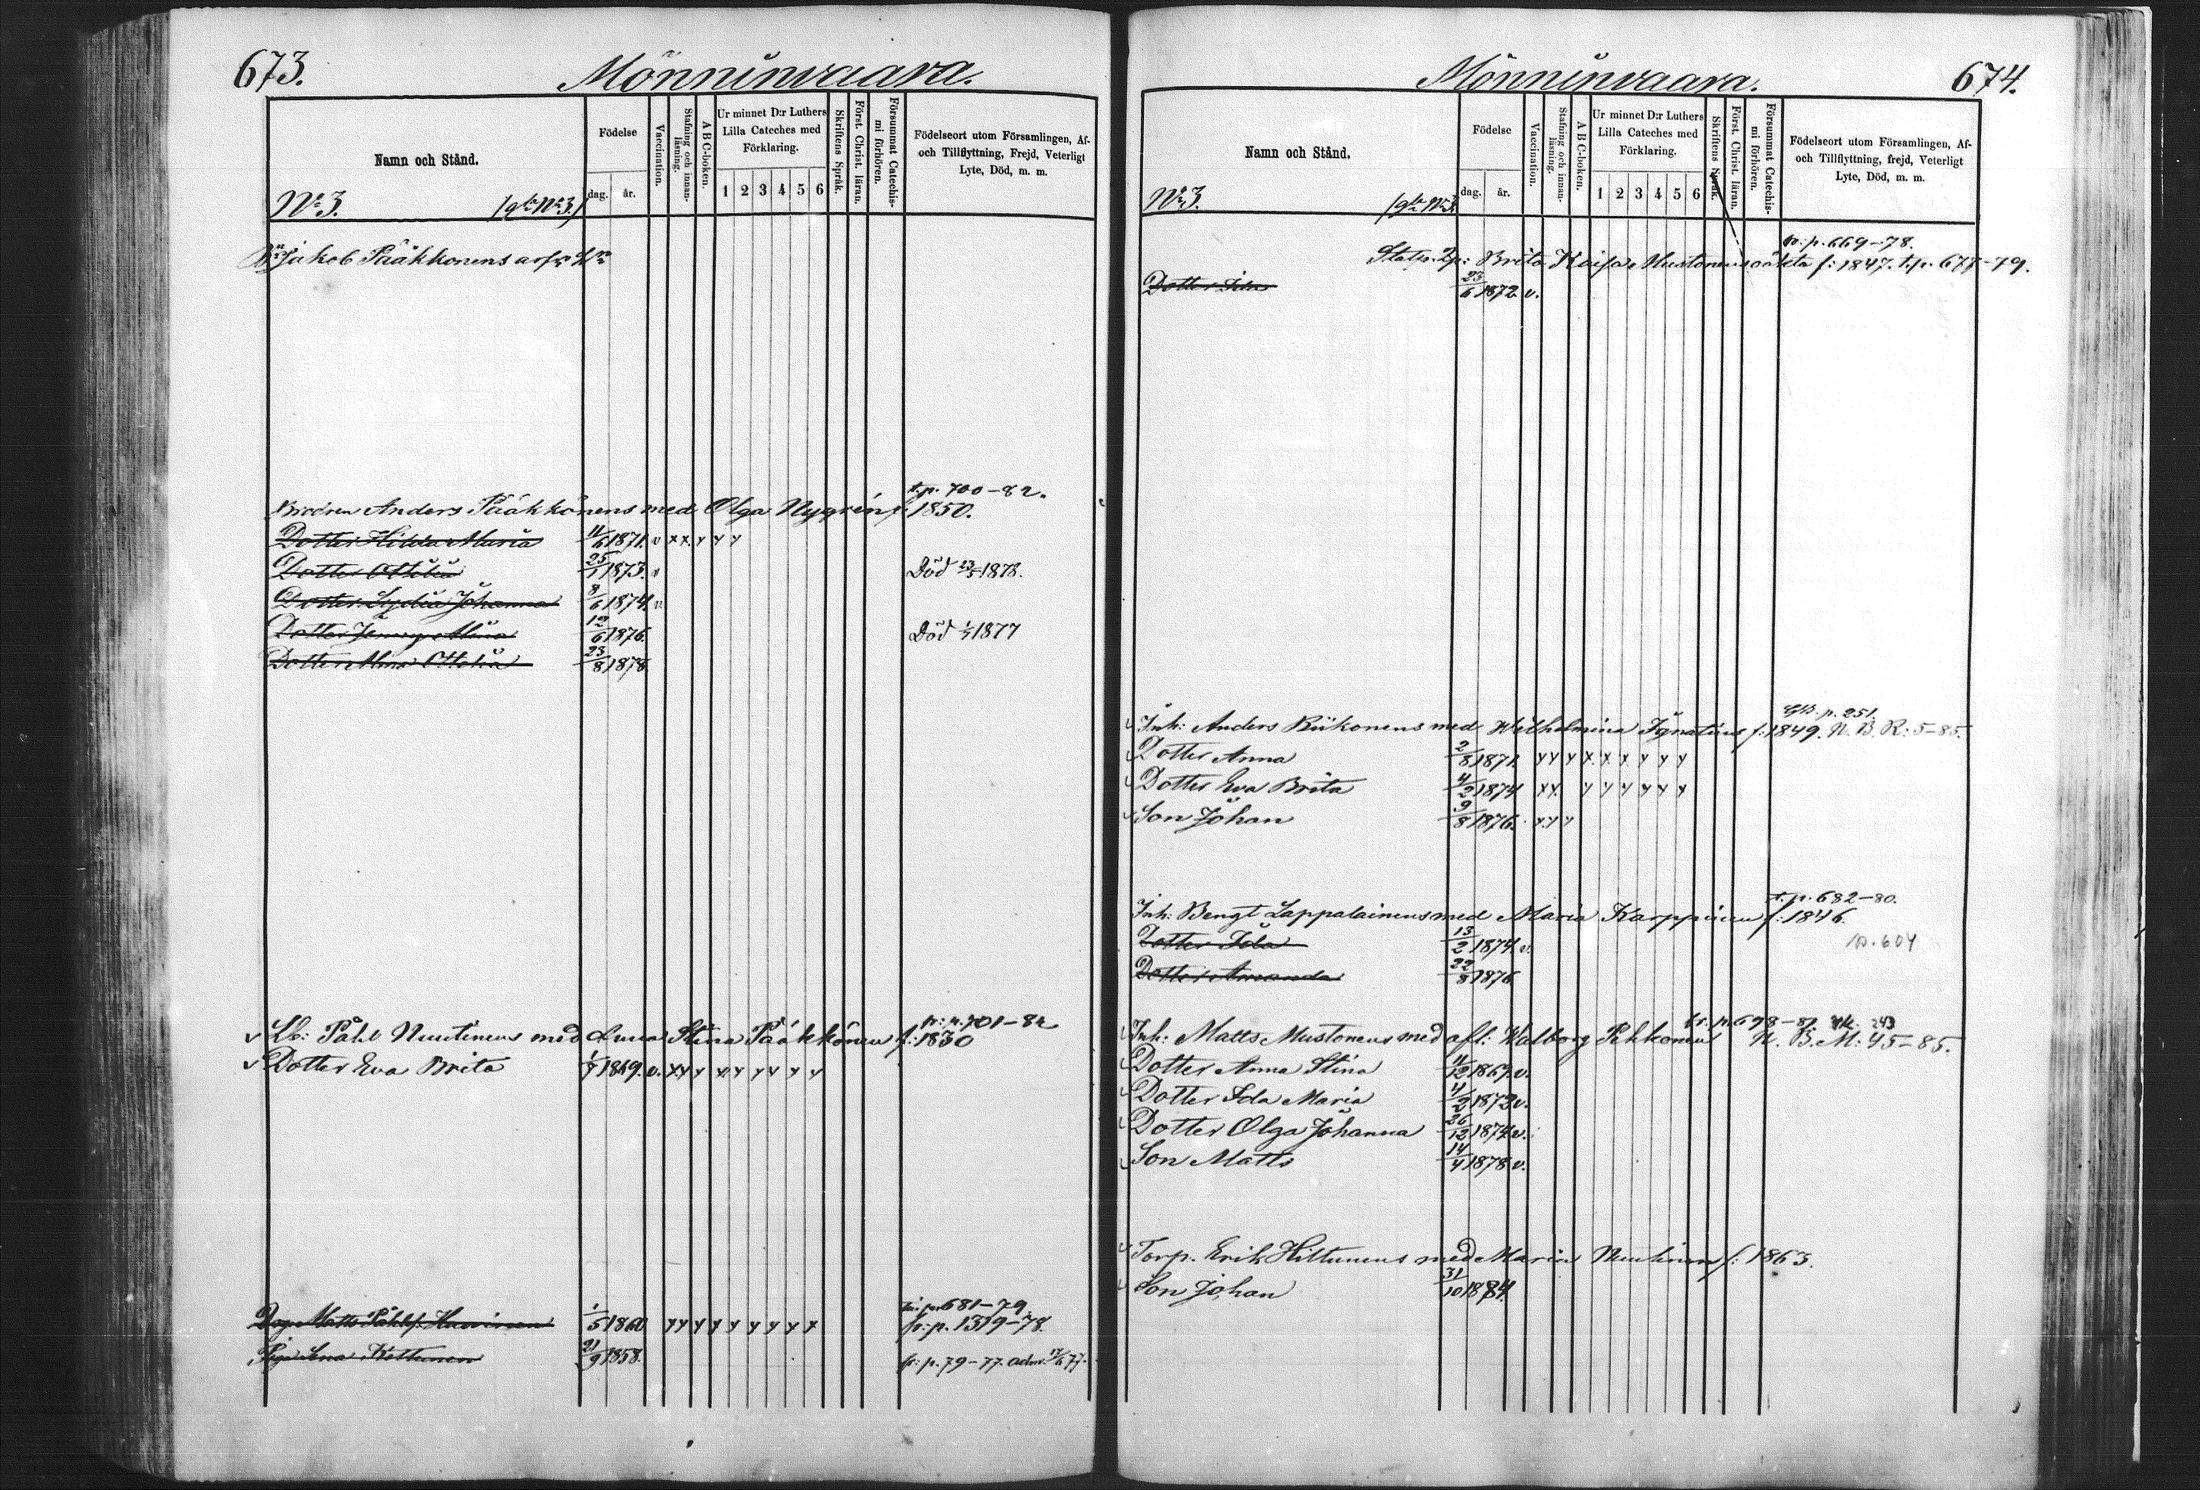 673.
Mönninvaara.
Namn och Stånd.
Födelse
dag. år.
Vaccination.
Stafning och innanläsning.
A B C-boken.
Ur minnet D:r Luthers Lilla Cateches med Förklaring.
1 2 3 4 5 6
Skriftens Språk.
Först. Christ. läran.
Försummat Catechismi förhören.
Födelseort utom Församlingen, Af- och Tillflyttning, Frejd, Veterligt Lyte, Död, m. m.
No 3.
Jakob Pääkkönens
t. p. 700-82.
Brodren Anders Pääkkönens med Olga Nygrén f. 1850.
Dotter Hilda Maria 11/6 1871. v x x y y y
Dotter Ottilia 25/1 1873. v Död 1878.
Dotter Lydia Johanna 8/6 1874. v
Dotter Jenny Alina 12/6 1876. Död 1877
Dotter Alma Ottilia 23/8 1878
fr: p. 701-82
v Lb: Påhl Nuutinens med Anna Stina Pääkkönen f: 1830
v Dotter Eva Brita 1869. v. x y y y y y y y y
t. p. 681-79.
Drg Matts Påhlss. 1/5 1860 y y y y y y y y x fr: p. 1319-78.
Piga Lena Kettunen 21/9 1858. fr: p. 79-77. adm. 77.
674.
Mönninvaara.
Namn och Stånd.
Födelse
dag. år.
Vaccination.
Stafning och innanläsning.
A B C-boken.
Ur minnet D:r Luthers Lilla Cateches med Förklaring.
1 2 3 4 5 6
Skriftens Språk.
Först. Christ. läran.
Försummat Catechismi förhören.
Födelseort utom Församlingen, Af- och Tillflyttning, frejd, Veterligt Lyte, Död, m. m.
No 3.
fr: p. 669-78.
Brita Kaisa Mustonens oäkta f: 1847. t. p. 677-79.
Dotter 23/6 1872. v.
p. 251.
v Inh: Anders Riikonens med Wilhelmina Ignatius f: 1849. N. B. R: 5-85.
v Dotter Anna 2/8 1871. y y y x x y y y y
v Dotter Eva Brita 4/2 1874 x x. y y y y x y
v Son Johan 9/8 1876. y y y
t. p. 682-80.
Inh: Bengt Lappalainens med Maria Karppinen f: 1846.
Dotter Ida 13/2 1874 v. p. 604
Dotter Amanda 22/8 1876
fr. p. 698-81. 243
v Inh: Matts Mustonens med afl: Walborg Pehkonen N. B. M: 45-85.
v Dotter Anna Stina 11/12 1869. v.
v Dotter Ida Maria 11/2 1872 v.
v Dotter Olga Johanna 26/12 1874 v.
v Son Matts 14/4 1878 v.
v Torp. Erik Hiltunens med Maria Nuutinen f: 1863.
v Son Johan 31/10 1884.